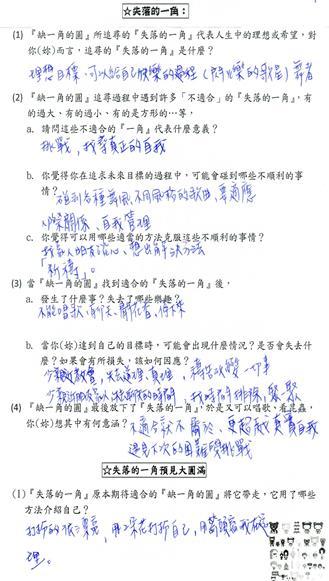 ☆失落的一角：
(1)『缺一角的圓』所追尋的『失落的一角』代表人生中的理想或希望，對
你(妳)而言，追尋的『失落的一角』是什麼？
理想目標，可以給自己快樂的
(2)『缺一角的圓』追尋過程中遇到許多「不適合」的『失落的一角』，有
的過大、有的過小、有的是方形的…等，
a. 請問這些不適合的『一角』代表什麼意義？
挑戰，找尋真正的自我
b. 你覺得你在追求未來目標的過程中，可能會碰到哪些不順利的事
情？
不同風格的歌曲，要適應
人際關係、自我管理
c. 你覺得可以用哪些適當的方法克服這些不順利的事情？
想出解決方法
「祈禱」。
(3) 當『缺一角的圓』找到適合的『失落的一角』後，
a. 發生了什麼事？失去了哪些樂趣？
不能唱歌、聊天、聞花香
b. 當你(妳)達到自己的目標時，可能會出現什麼情況？是否會失去什
麼？如果會有所損失，該如何因應？
禱告改變一切事
找時間排除，聚聚
(4)『缺一角的圓』最後放下了『失落的一角』，於是又可以唱歌，看昆蟲，
你(妳)想其中有何意涵？
真實自我
遇見下次的困難與挑戰
☆失落的一角預見大圓滿
(1)『失落的一角』原本期待適合的『缺一角的圓』將它帶走，它用了哪些
方法介紹自己？
打扮的很漂亮，用花打扮自己，用
理。